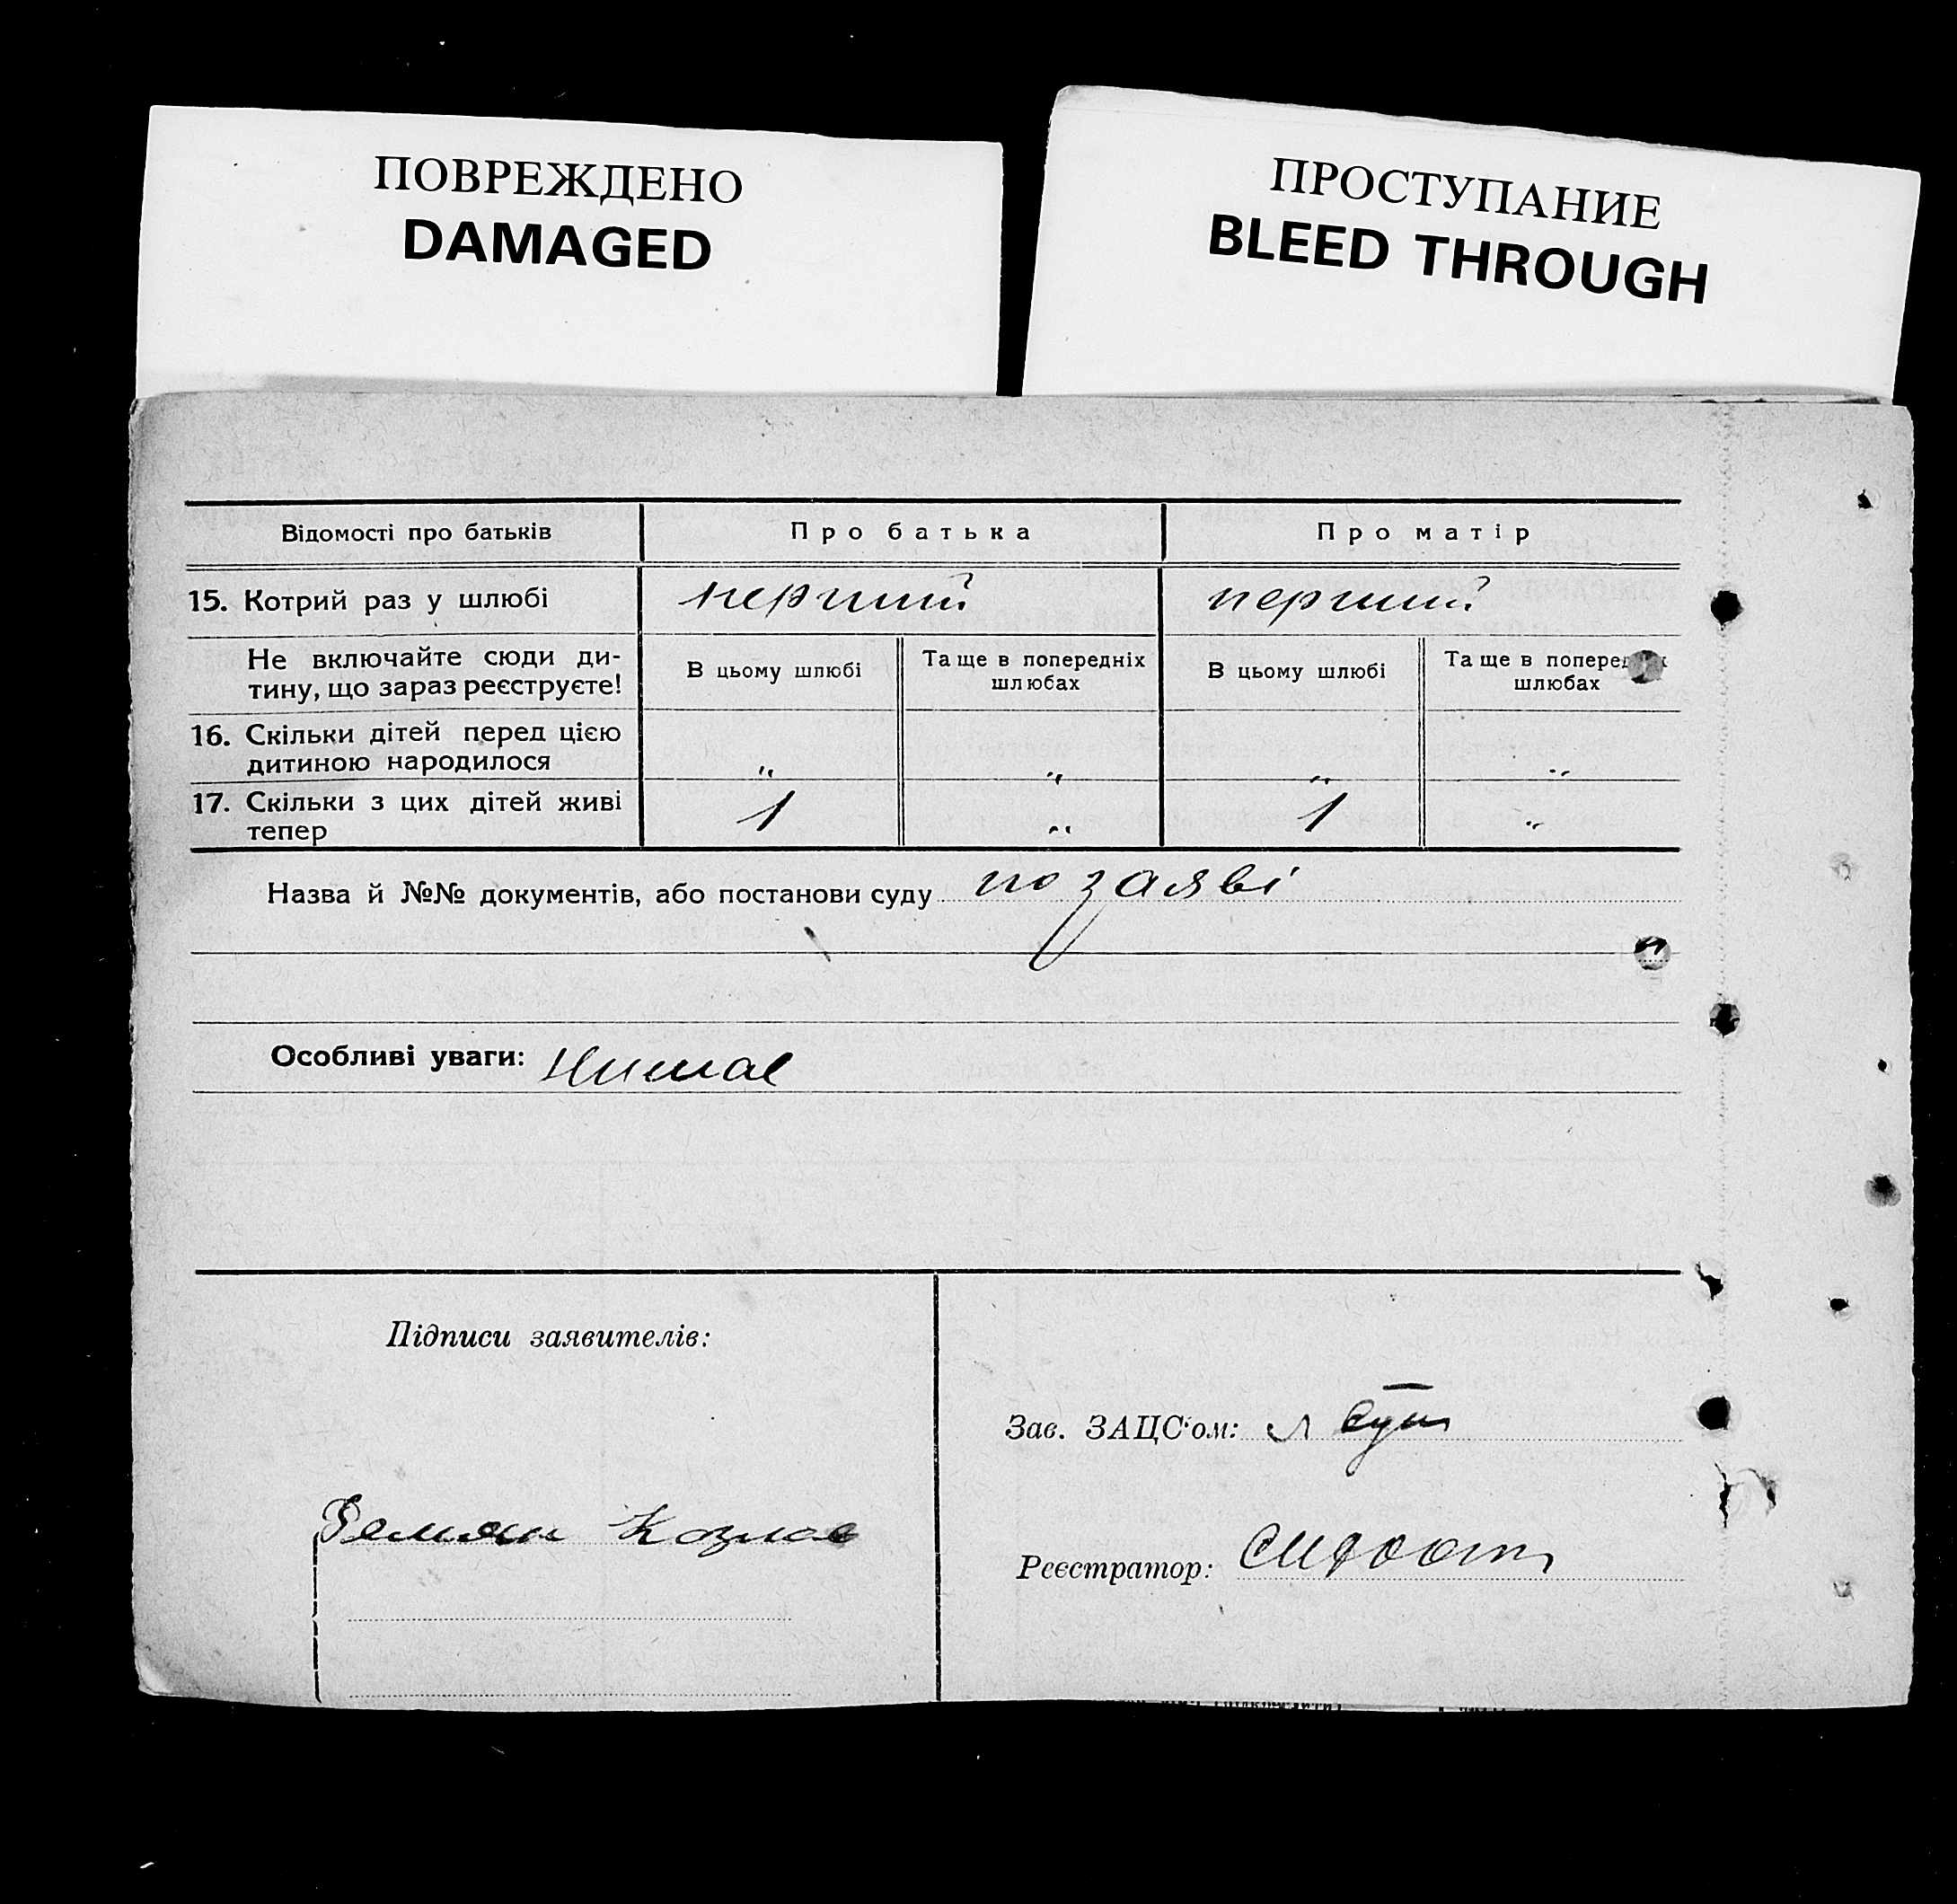 ПОВРЕЖДЕНО
DAMAGED
ПРОСТУПАНИЕ
BLEED THROUGH
Відомості про батьків
Про батька
Про матір
15. Котрий раз у шлюбі
перший
перший
Не включайте сюди ди-
тину, що зараз реєструєте!
В цьому шлюбі
Та ще в попередніх
шлюбах
В цьому шлюбі
Та ще в попередніх
шлюбах
16. Скільки дітей перед цією
дитиною народилося
" " " "
17. Скільки з цих дітей живі
тепер
1 " 1 "
Назва й №№ документів, або постанови суду по заяві
Особливі уваги: Нимає
Підписи заявителів:
Зав. ЗАЦС'ом:
Козлов
Реєстратор: